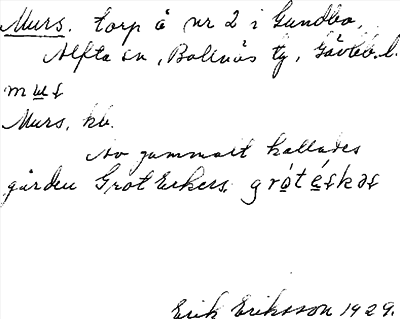 Murs. torp å nr 2 i Gundbo,
Alfta sn, Bollnäs tg, Gävleb. l.
mu̲s
Murs, kb.
Av gammalt kallades
gården Grot Erkers. grótéskəs
Erik Eriksson 1929.